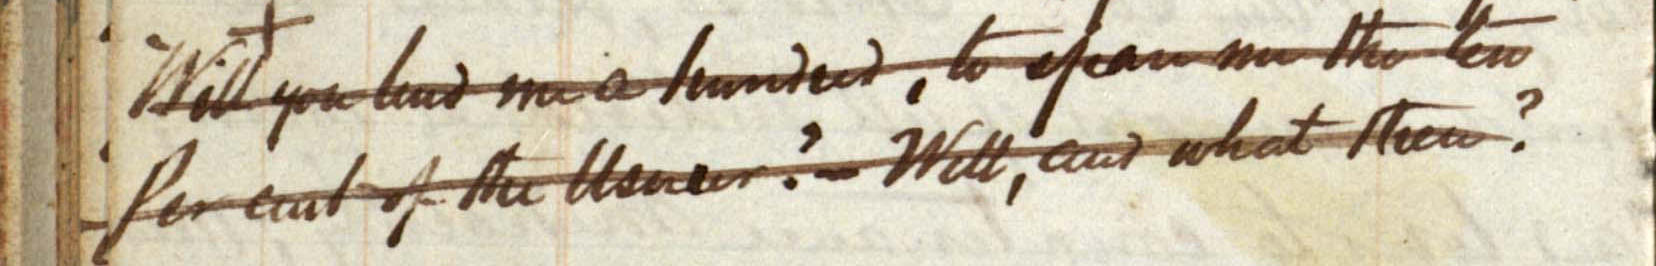 Will you lend me a hundred, to spare me the ten
Per cent of the Usurer? – Well, and what then?